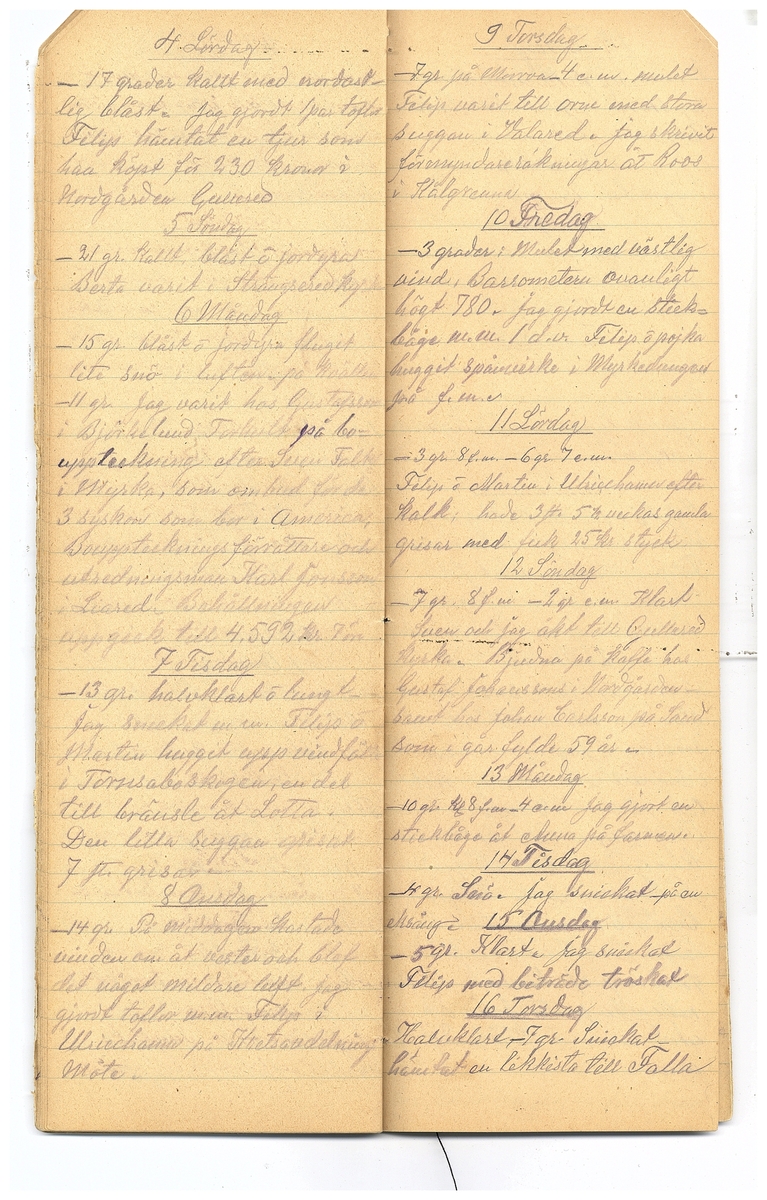 4 Lördag
– 17 grader kallt med nordost-
lig blåst. Jag gjordt 1 par toflor
Filip hämtat en tjur som
han köpt för 230 kronor i
Nordgården Gullered
5 Söndag
– 21 gr. kallt, blåst ö jordyra
Berta varit i Strängsered
6 Måndag
– 15 gr. blåst ö jordyra fluget
lite snö i luften på
– 11 gr. Jag varit hos Gustafsson
i Björkelund på bo-
uppteckning efter Sven Falk
i Myrka, som ombud för de
3 syskon som bor i America,
Bouppteckningsförrättare och
utredningsman Karl Jonsson
i Liared. Behållningen
uppgeck till 4,592 kr.
7 Tisdag
– 13 gr. halvklart ö lungt –
Jag snickat m.m. Filip ö
Martin hugget upp vindfälle
i Tornsaboskogen, en del
till bränsle åt Lotta.
Den lilla suggan grisat
7 st. grisar.
8 Onsdag
– 14 gr. På middagen kastade
vinden om åt vester och blef
det något mildare luft. Jag
gjordt toflor m.m. Filip i
Ulricehamn på Kretsavdelnings
Möte.
9 Torsdag
– 7 gr. på Morron – 4 e.m. mulet
Filip varit till orne med stora
suggan i Valared. Jag skrivit
förmyndareräkningar åt Roos
i Hålgreana
10 Fredag
– 3 grader: Mulet med västlig
vind, Barsometern ovanligt
högt 780. Jag gjordt en stick-
båge m.m. 1 d.v. Filip ö pojka
huggit spånvirke i Myrkedungen
på f.m.
11 Lördag
– 3 gr. 8 f.m. – 6 gr. 7 e.m.
Filip ö Martin i Ulricehamn efter
kalk; hade 3 st 5 ½ veckas gamla
grisar med fick 25 kr styck
12 Söndag
– 7 gr. 8 f.m. – 2 gr e.m. Klart
Sven och jag åkt till Gullered
kyrka. Bjudna på kaffe hos
Gustaf Johanssons i Nordgården
samt hos Johan Carlsson på Sand
som i går fylde 59 år.
13 Måndag
– 10 gr. kl 8 f.m – 4 e.m Jag gjort en
stickbåge åt Anna på farmen.
14 Tisdag
– 4 gr. Snö. Jag snickat på en
15 Onsdag
– 5 gr. Klart. Jag snickat
Filip med biträde tröskat
16 Torsdag
Halvklart – 7 gr. Snickat –
hämtat en likkista till Falla